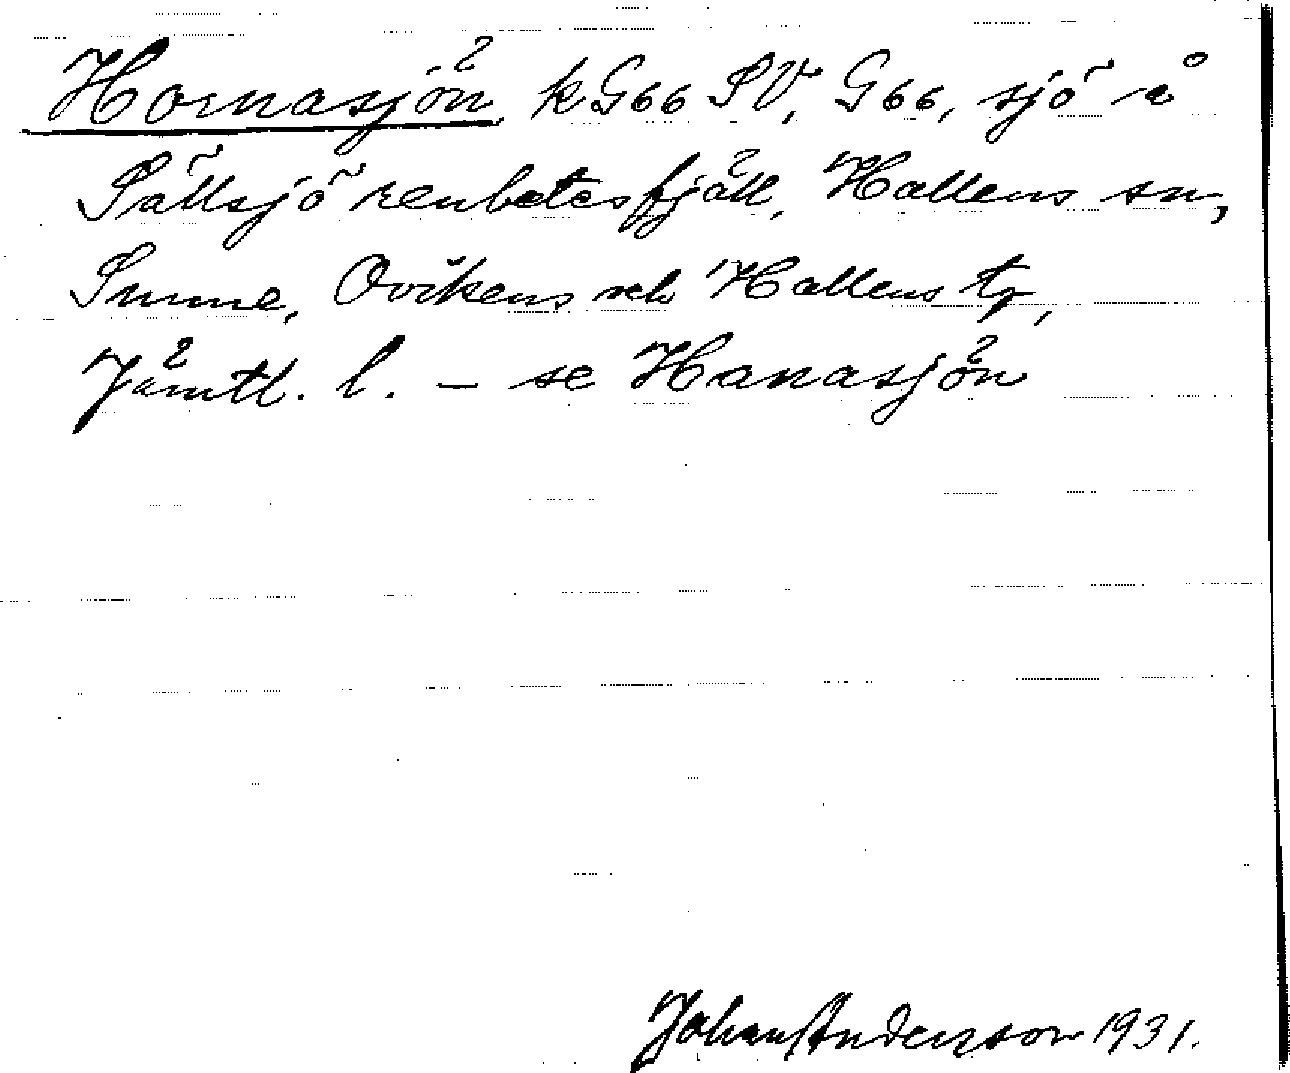 Hornasjön, kG66 SV, G66, sjö å
Sällsjö renbetesfjäll, Hallens sn,
Sunne, Ovikens och Hallens tg,
Jämtl. l. – se Hanasjön
Johan Anderson 1931.